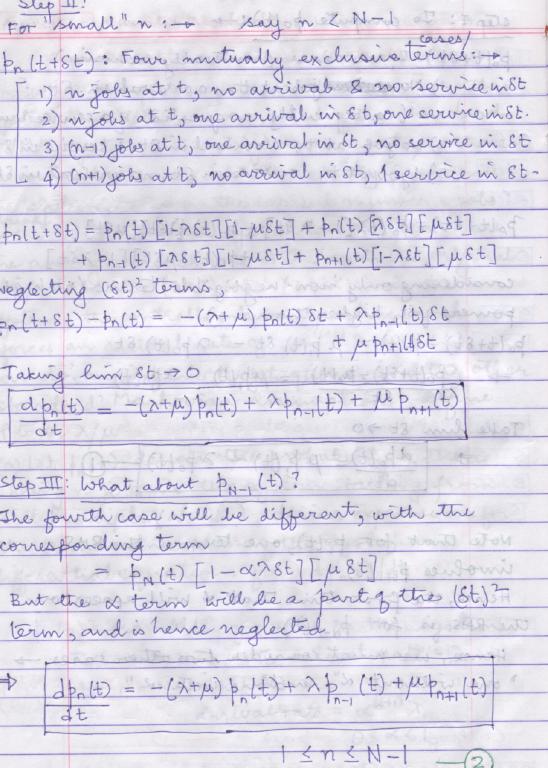 Step II:
For "small" n :→ say n < N-1
cases/
pₙ(t+δt) : Four mutually exclusive terms :→
1) n jobs at t, no arrival & no service in δt
2) n jobs at t, one arrival in δt, one service in δt.
3) (n-1) jobs at t, one arrival in δt, no service in δt
4) (n+1) jobs at t, no arrival in δt, 1 service in δt -
pₙ(t+δt) = pₙ(t) [1-λδt][1-μδt] + pₙ(t) [λδt][μδt]
+ pₙ₋₁(t) [λδt][1-μδt] + pₙ₊₁(t)[1-λδt][μδt]
neglecting (δt)² terms,
pₙ(t+δt) - pₙ(t) = -(λ+μ) pₙ(t) δt + λpₙ₋₁(t) δt
+ μ pₙ₊₁(t)δt
Taking lim δt → 0
dpₙ(t)/dt = -(λ+μ) pₙ(t) + λpₙ₋₁(t) + μ pₙ₊₁(t)
Step III: What about p_{N-1}(t)?
The fourth case will be different, with the
corresponding term
= p_N(t) [1-αλδt][μδt]
But the α term will be a part of the (δt)²
term, and is hence neglected
⇒ dpₙ(t)/dt = -(λ+μ) pₙ(t) + λ pₙ₋₁(t) + μpₙ₊₁(t)
1 ≤ n ≤ N-1 — 2